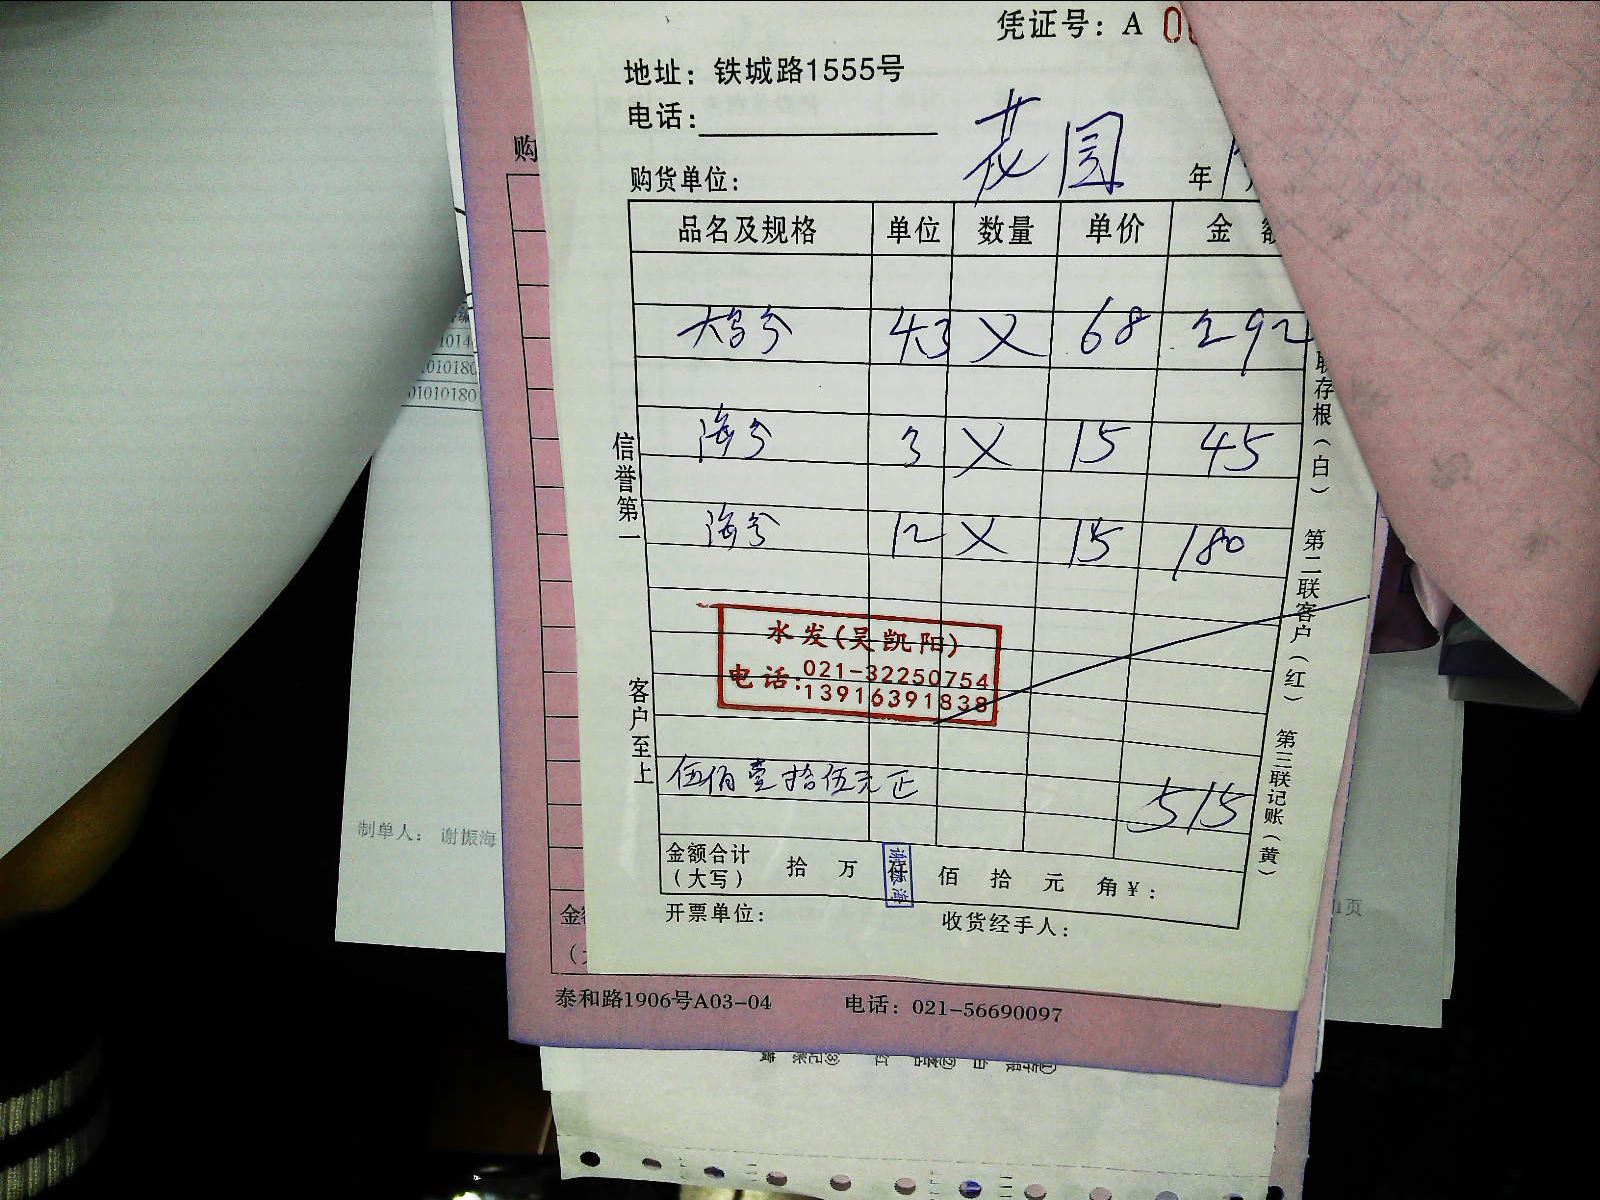 凭证号：A
地址：铁城路1555号
电话：
花园
购货单位：
年
品名及规格 单位 数量 单价 金 额
43 X 68 292
海 3 X 15 45
海 12 X 15 180
信誉第一
客户至上
联存根（白） 第二联客户（红） 第三联记账（黄）
水发(吴凯阳)
电话:021-32250754
13916391838
伍佰壹拾伍元正
515
金额合计
（大写） 拾 万 佰 拾 元 角 ¥：
谢振海
开票单位： 收货经手人：
购
泰和路1906号A03-04 电话：021-56690097
制单人： 谢振海
1014
010180
01010180
1页